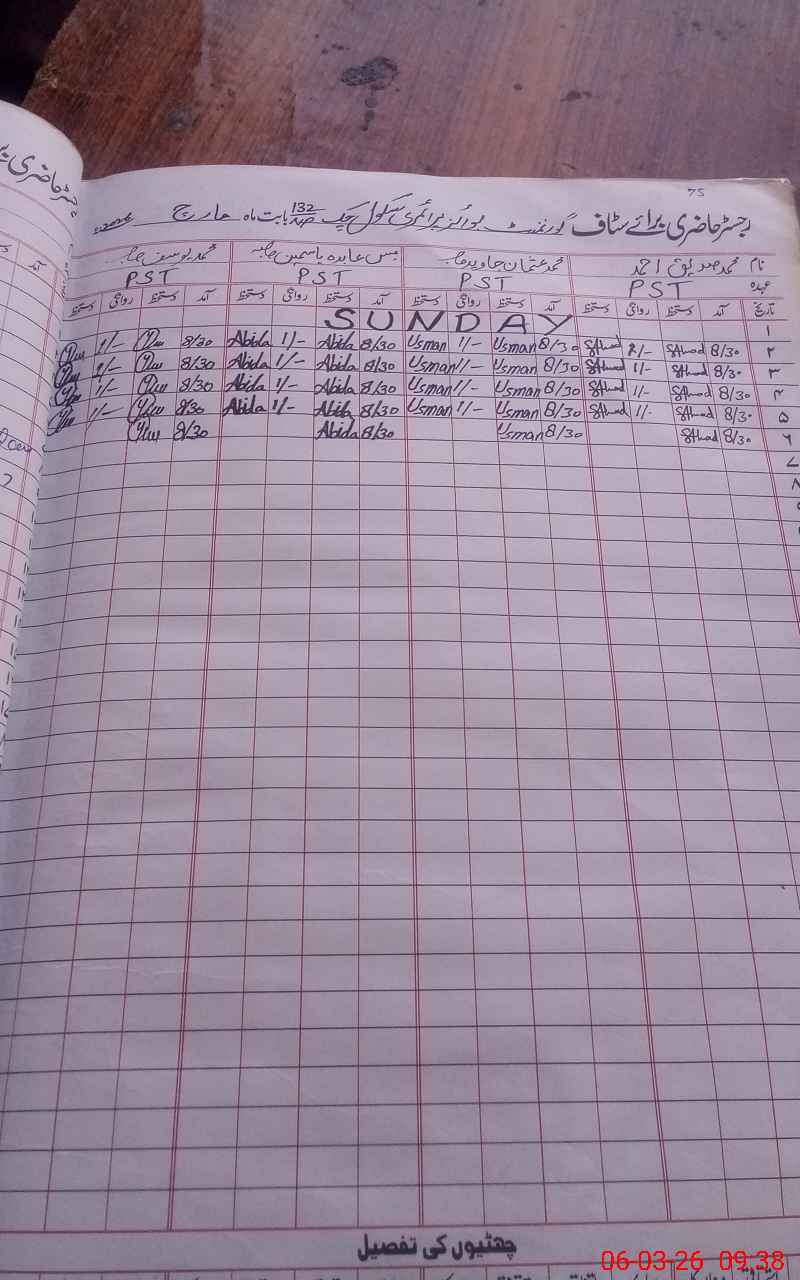 75
رجسٹر حاضری برائے سٹاف گورنمنٹ بوائز پرائمری سکول چک 132 بابت ماہ مارچ 2026
نام محمد صدیق احمد محمد عثمان جاوید صاحب مس عابدہ یاسمین صاحبہ محمد یوسف صاحب
عہدہ PST PST PST PST
تاریخ آمد دستخط روانگی دستخط آمد دستخط روانگی دستخط آمد دستخط روانگی دستخط آمد دستخط روانگی دستخط
۱ SUNDAY
۲ 8/30 2/- 8/30 Usman 1/- Usman 8/30 Abida 1/- Abida 8/30 1/-
۳ 8/30 1/- 8/30 Usman 1/- Usman 8/30 Abida 1/- Abida 8/30 1/-
۴ 8/30 1/- 8/30 Usman 1/- Usman 8/30 Abida 1/- Abida 8/30 1/-
۵ 8/30 1/- 8/30 Usman 1/- Usman 8/30 Abida 1/- Abida 8/30 1/-
۶ 8/30 8/30 Usman 8/30 Abida 8/30
۷
۸
چھٹیوں کی تفصیل
06-03-26 09:38